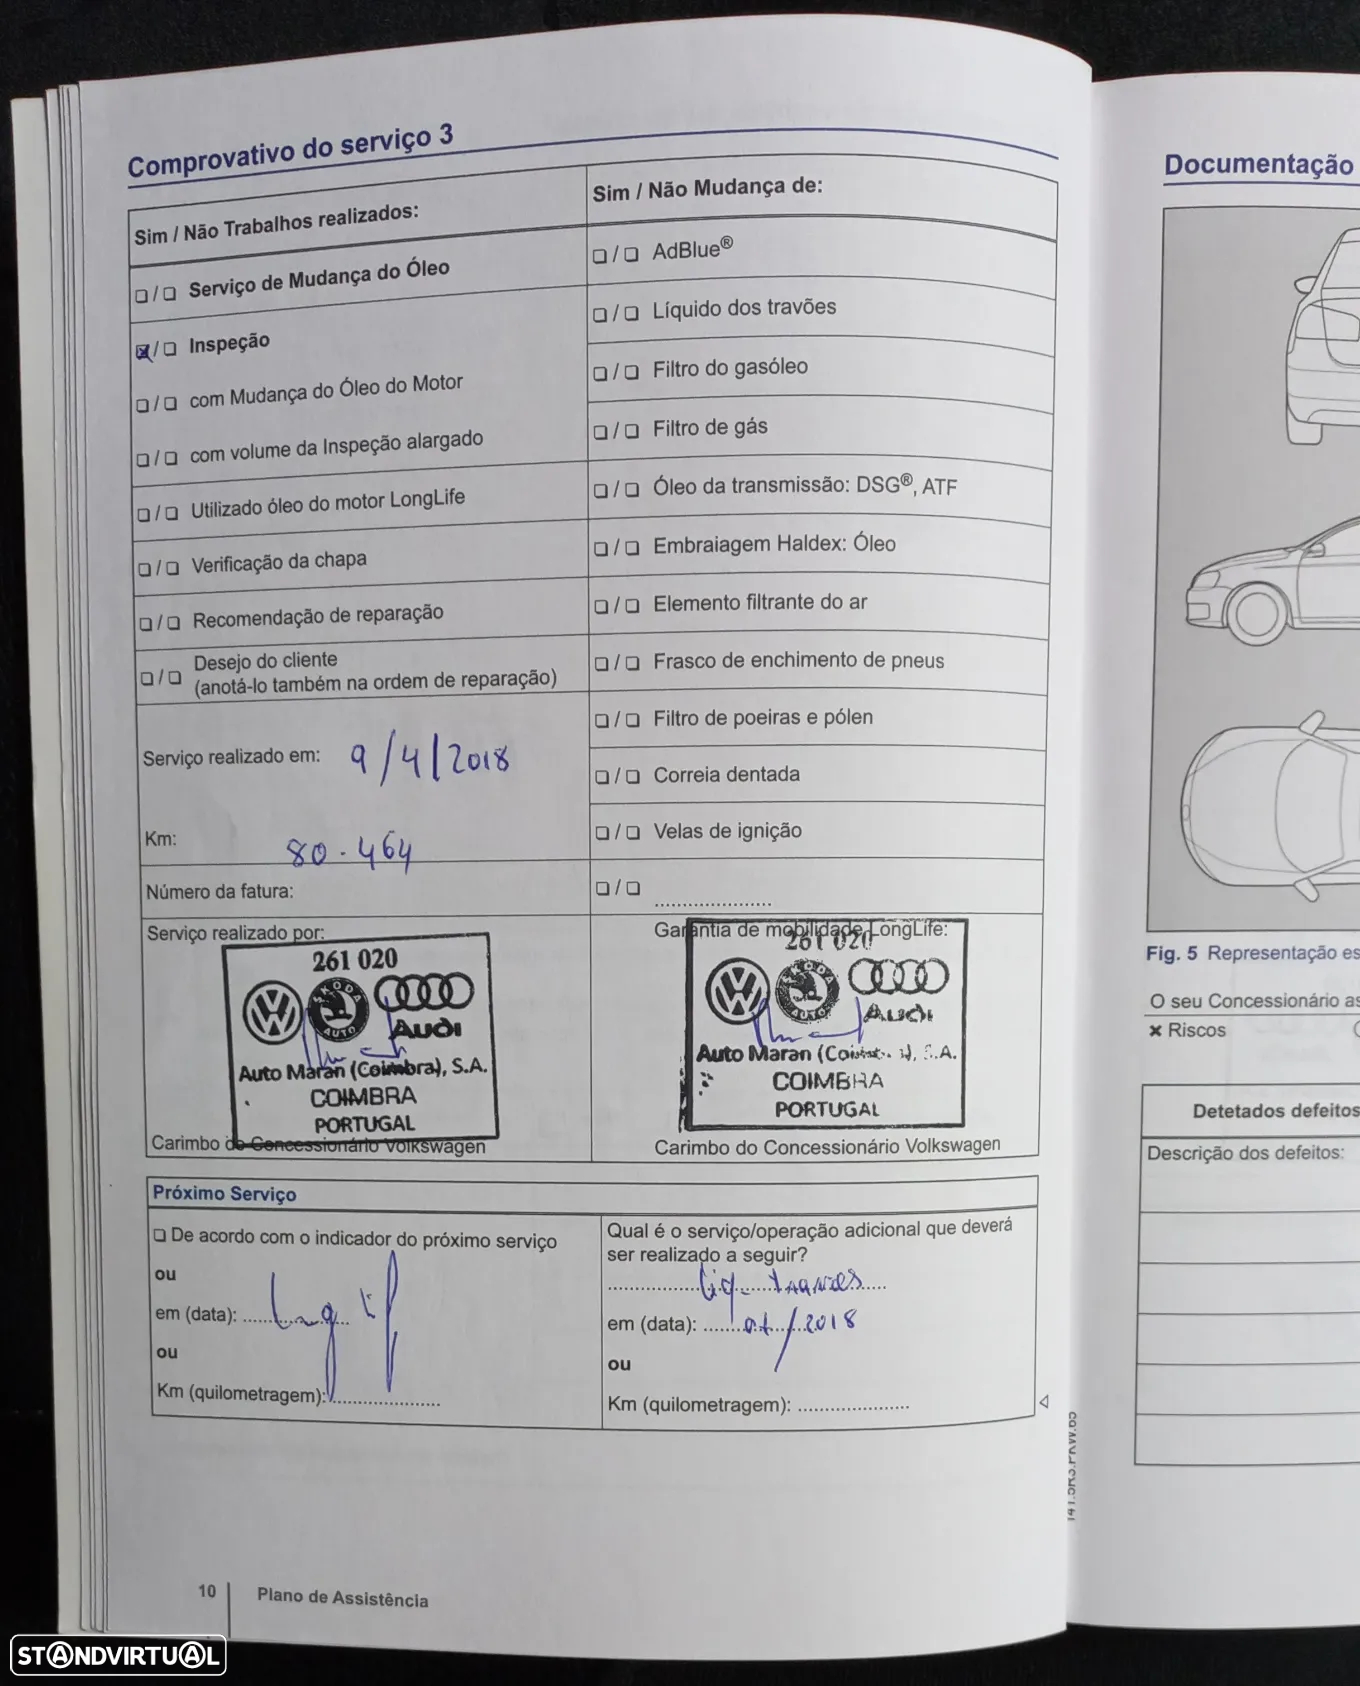 Comprovativo do serviço 3
Sim / Não Trabalhos realizados:
❑ / ❑ Serviço de Mudança do Óleo
☒ / ❑ Inspeção
❑ / ❑ com Mudança do Óleo do Motor
❑ / ❑ com volume da Inspeção alargado
❑ / ❑ Utilizado óleo do motor LongLife
❑ / ❑ Verificação da chapa
❑ / ❑ Recomendação de reparação
❑ / ❑ Desejo do cliente
(anotá-lo também na ordem de reparação)
Serviço realizado em: 9/4/2018
Km: 80.464
Número da fatura:
Sim / Não Mudança de:
❑ / ❑ AdBlue®
❑ / ❑ Líquido dos travões
❑ / ❑ Filtro do gasóleo
❑ / ❑ Filtro de gás
❑ / ❑ Óleo da transmissão: DSG®, ATF
❑ / ❑ Embraiagem Haldex: Óleo
❑ / ❑ Elemento filtrante do ar
❑ / ❑ Frasco de enchimento de pneus
❑ / ❑ Filtro de poeiras e pólen
❑ / ❑ Correia dentada
❑ / ❑ Velas de ignição
❑ / ❑ .....................
Serviço realizado por:
261 020
ŠKODA
AUTO
Audi
Auto Maran (Coimbra), S.A.
COIMBRA
PORTUGAL
Carimbo do Concessionário Volkswagen
Garantia de mobilidade LongLife:
261 020
ŠKODA
AUTO
Audi
Auto Maran (Coimbra), S.A.
COIMBRA
PORTUGAL
Carimbo do Concessionário Volkswagen
Próximo Serviço
❑ De acordo com o indicador do próximo serviço
ou
em (data):
ou
Km (quilometragem):
Qual é o serviço/operação adicional que deverá
ser realizado a seguir?
Liq. travões
em (data): /2018
ou
Km (quilometragem): .....................
10 Plano de Assistência
Documentação
Fig. 5 Representação es
O seu Concessionário as
✖ Riscos
Detetados defeitos
Descrição dos defeitos:
STANDVIRTUAL